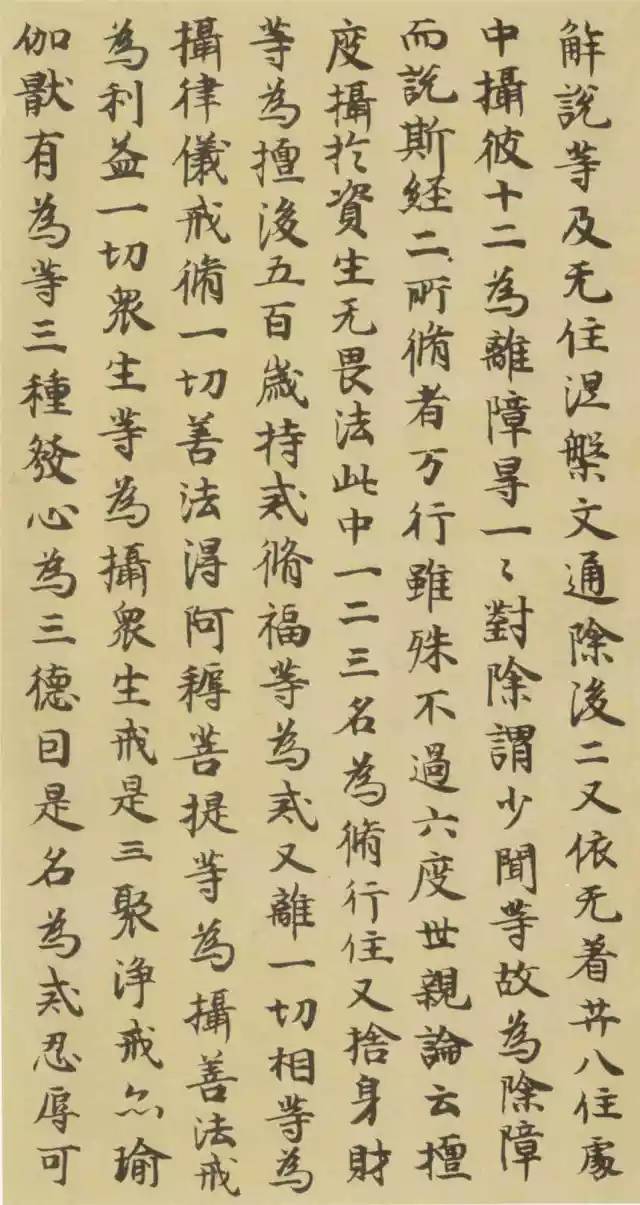 解說等及无住涅槃文通除後二又依无着廿八住處
中攝彼十二為離障㝵一〻對除謂少聞等故為除障
而說斯経二所脩者万行雖殊不過六度世親論云檀
度攝扵資生无畏法此中一二三名為脩行住又捨身財
等為檀後五百歲持戒脩福等為戒又離一切相等為
攝律儀戒脩一切善法得阿耨菩提等為攝善法戒
為利益一切衆生等為攝衆生戒是三聚浄戒尒瑜
伽猒有為等三種發心為三德因是名為戒忍辱可